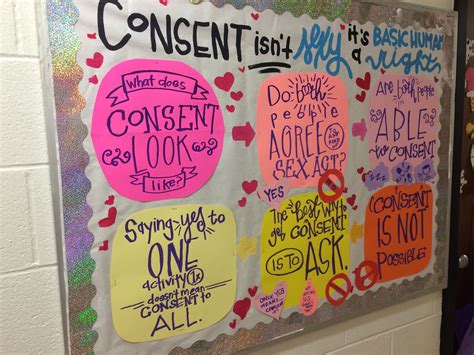 CONSENT isn't
it's a BASIC HUMAN right
What does
CONSENT
LOOK
like?
Do both
people
AGREE
SEX ACT?
Are both people
ABLE
to CONSENT
YES
Saying yes to
ONE
activity 1x
doesn't mean
CONSENT to
ALL.
The best way to
get CONSENT
IS TO ASK.
CONSENT
IS NOT
POSSIBLE